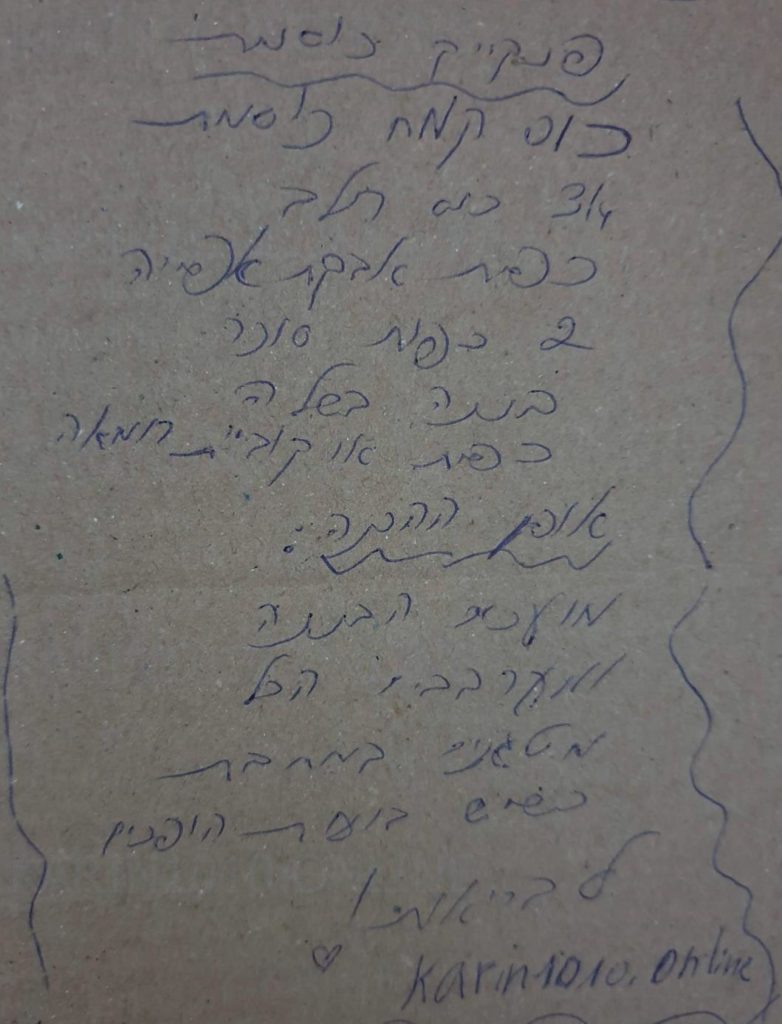 פנקייק כוסמת
כוס קמח כוסמת
3/4 כוס חלב
כפית אבקת אפייה
2 כפות סוכר
בננה בשלה
כפית או קוביית חמאה
אופן ההכנה:
מועכים הבננה
ומערבבים הכל
מטגנים במחבת
כשיש בועות הופכים
לבריאות!
karin1010.online